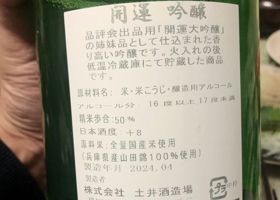 開運 吟醸
品評会出品用「開運大吟醸」
の姉妹品として仕込まれた香
り高い吟醸です。火入れの後
低温冷蔵庫にて貯蔵した商品
です。
原材料名:米・米こうじ・醸造用アルコール
アルコール分:16度以上17度未満
精米歩合:50%
日本酒度:+8
原料米:全量国産米使用
(兵庫県産山田錦100%使用)
製造年月 2024.04
製造者
株式会社 土井酒造場